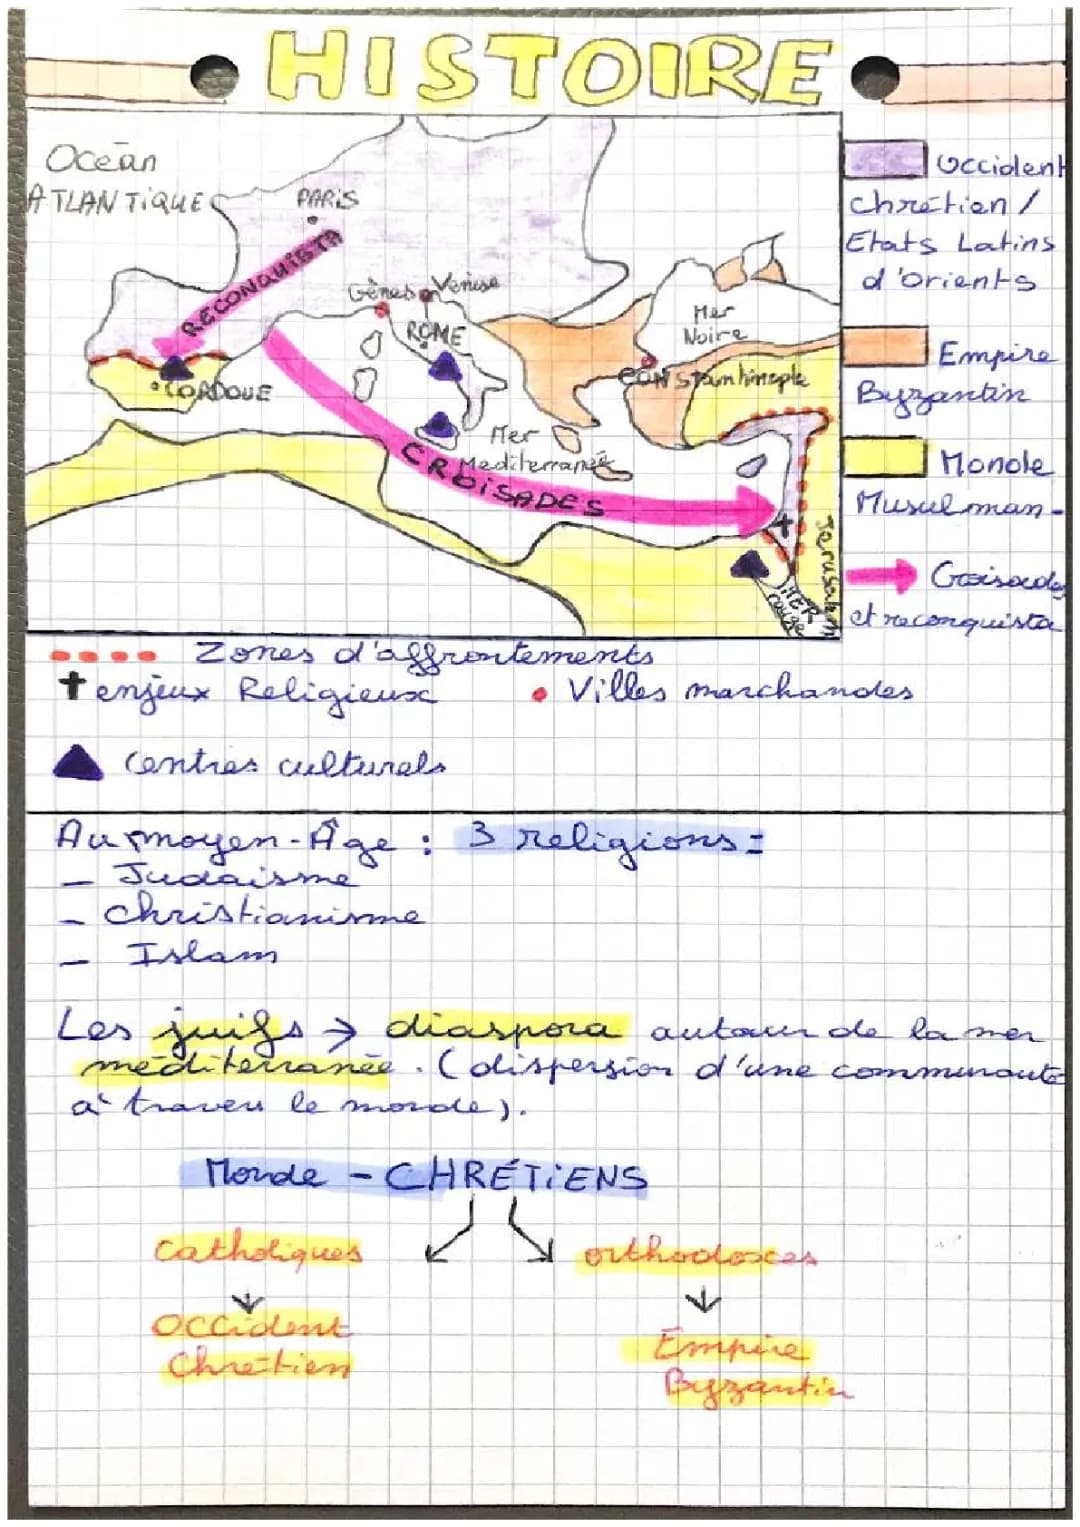 HISTOIRE
Océan
ATLANTIQUE
PARIS
RECONQUISTA
Gènes
Venise
ROME
CORDOUE
Mer
Noire
CONStantinople
Mer
Mediterranée
CROISADES
Jerusalem
MER
rouge
Occident
Chrétien /
Etats Latins
d'Orients
Empire
Byzantin
Monde
Musulman-
Croisades
et reconquista
Zones d'affrontements
enjeux Religieux
Villes marchandes
Centres culturels
Au moyen-Âge : 3 religions =
- Judaisme
- Christianisme
- Islam
Les juifs → diaspora autour de la mer
méditerranée. (dispersion d'une communauté
à travers le monde).
Monde - CHRÉTiENS
Catholiques
orthodoxes
Occident
Chrétien
Empire
Byzantin